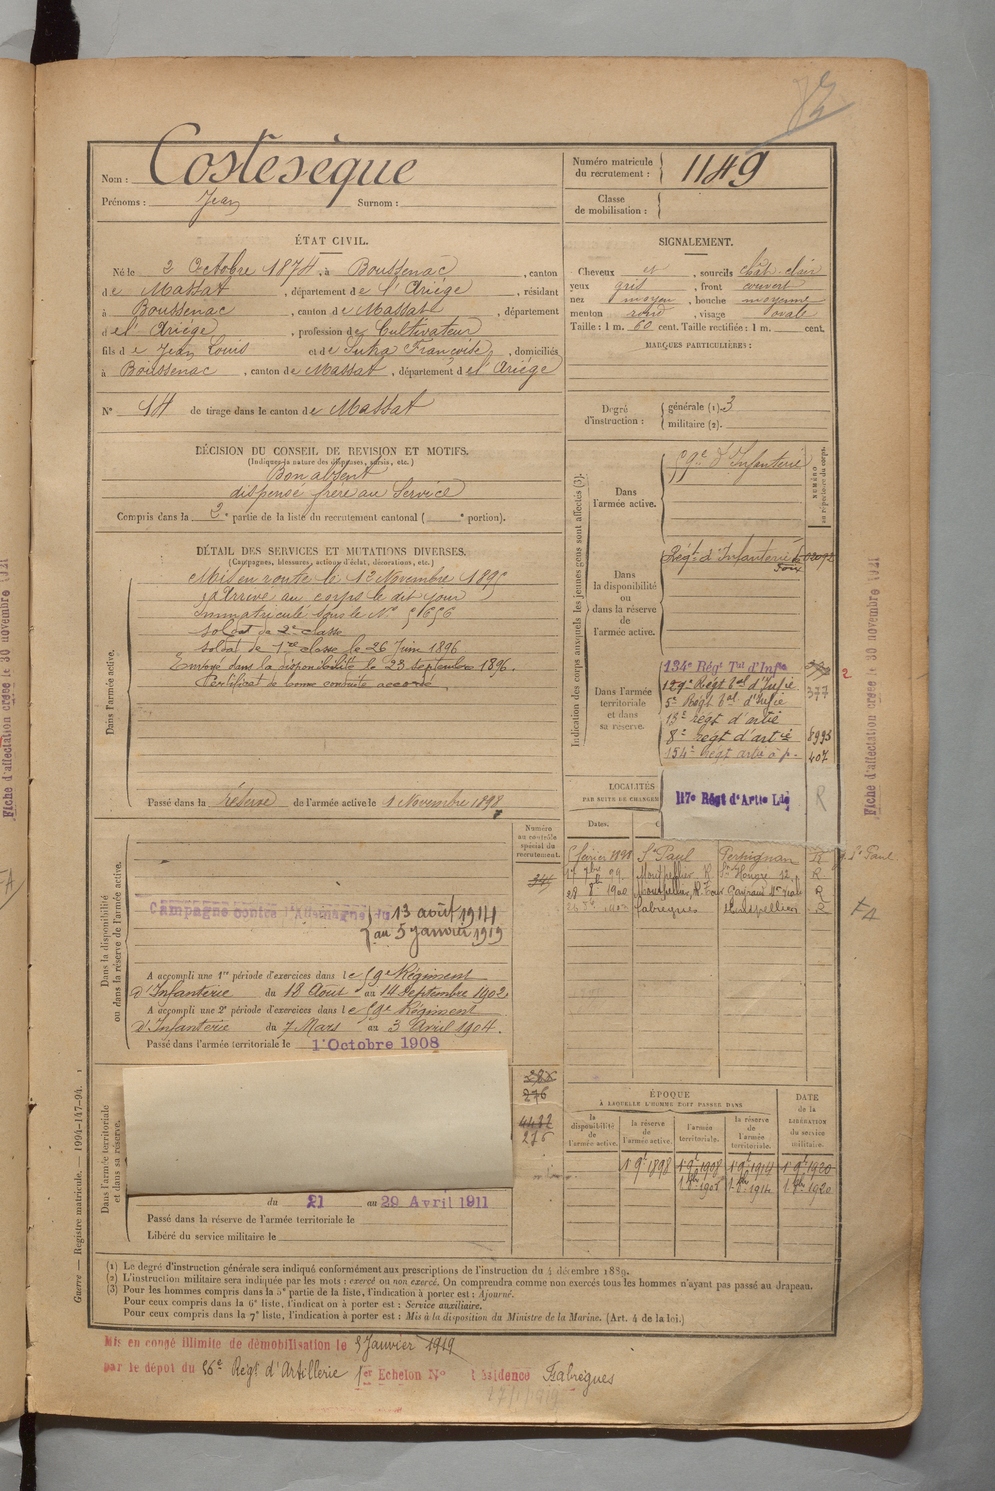 Nom : Costesèque
Prénoms : Jean Surnom :
Numéro matricule du recrutement : 1149
Classe de mobilisation :
ÉTAT CIVIL.
Né le 2 Octobre 1874, à Boussenac, canton
de Massat, département de l'Ariège, résidant
à Boussenac, canton de Massat, département
de l'Ariège, profession de Cultivateur
fils de Jean Louis et de Françoise, domiciliés
à Boussenac, canton de Massat, département de l'Ariège
N° 14 de tirage dans le canton de Massat
SIGNALEMENT.
Cheveux et, sourcils chât-clair
yeux gris, front couvert
nez moyen, bouche moyenne
menton rond, visage ovale
Taille : 1 m. 60 cent. Taille rectifiée : 1 m. cent.
MARQUES PARTICULIÈRES :
Degré d'instruction : générale (1). 3
militaire (2).
DÉCISION DU CONSEIL DE REVISION ET MOTIFS.
(Indiquer la nature des dispenses, sursis, etc.)
Bon absent
dispensé frère au Service
Compris dans la 2e partie de la liste du recrutement cantonal ( e portion).
DÉTAIL DES SERVICES ET MUTATIONS DIVERSES.
(Campagnes, blessures, actions d'éclat, décorations, etc.)
Dans l'armée active.
Mis en route le 12 Novembre 1895
Arrivé au corps le dit jour
Immatriculé sous le N°
soldat de 2e classe
soldat de 1re classe le 26 Juin 1896
Envoyé dans la disponibilité le 23 septembre 1896.
Certificat de bonne conduite accordé
Passé dans la réserve de l'armée active le 1 Novembre 1898
Indication des corps auxquels les jeunes gens sont affectés (3).
NUMÉRO au répertoire du corps.
Dans l'armée active.
59e d'Infanterie
Dans la disponibilité ou dans la réserve de l'armée active.
Régt d'Infanterie de Foix
Dans l'armée territoriale et dans sa réserve.
134e Régt Tal d'Infie
129e Régt Tal d'Infie 377
5e Régt Tal d'Infie
13e régt d'artie
8e régt d'artie 8993
154e régt artie à p. 407
117e Régt d'Artie Lde R
LOCALITÉS
PAR SUITE DE CHANGEM
Dates.
février 1898 St Paul Perpignan R
Montpellier R. St Honoré 12, R
1900 Montpellier, R
Fabrègues Montpellier R
Numéro au contrôle spécial du recrutement.
Dans la disponibilité ou dans la réserve de l'armée active.
Campagne contre l'Allemagne du 13 août 1914
au 5 janvier 1919
A accompli une 1re période d'exercices dans le 59e Régiment
d'Infanterie du 18 Août au 14 septembre 1902.
A accompli une 2e période d'exercices dans le 59e Régiment
d'Infanterie du 7 Mars au 3 Avril 1904.
Passé dans l'armée territoriale le 1 Octobre 1908
276
4477
276
Dans l'armée territoriale et dans sa réserve.
du 21 au 29 Avril 1911
Passé dans la réserve de l'armée territoriale le
Libéré du service militaire le
ÉPOQUE
À LAQUELLE L'HOMME DOIT PASSER DANS
la disponibilité de l'armée active.
la réserve de l'armée active.
l'armée territoriale.
la réserve de l'armée territoriale.
DATE de la LIBÉRATION du service militaire.
1 9e 1898 1 9e 1908 1 9e 1914 1 9e 1920
(1) Le degré d'instruction générale sera indiqué conformément aux prescriptions de l'instruction du 4 décembre 1889.
(2) L'instruction militaire sera indiquée par les mots : exercé ou non exercé. On comprendra comme non exercés tous les hommes n'ayant pas passé au drapeau.
(3) Pour les hommes compris dans la 5e partie de la liste, l'indication à porter est : Ajourné.
Pour ceux compris dans la 6e liste, l'indication à porter est : Service auxiliaire.
Pour ceux compris dans la 7e liste, l'indication à porter est : Mis à la disposition du Ministre de la Marine. (Art. 4 de la loi.)
Mis en congé illimité de démobilisation le 5 Janvier 1919
par le dépôt du 56e Régt d'Artillerie 1er Echelon N° Résidence Fabrègues
Guerre — Registre matricule. — 1994-147-94.
Fiche d'affectation créée le 30 novembre 1921
Fiche d'affectation créée le 30 novembre 1921